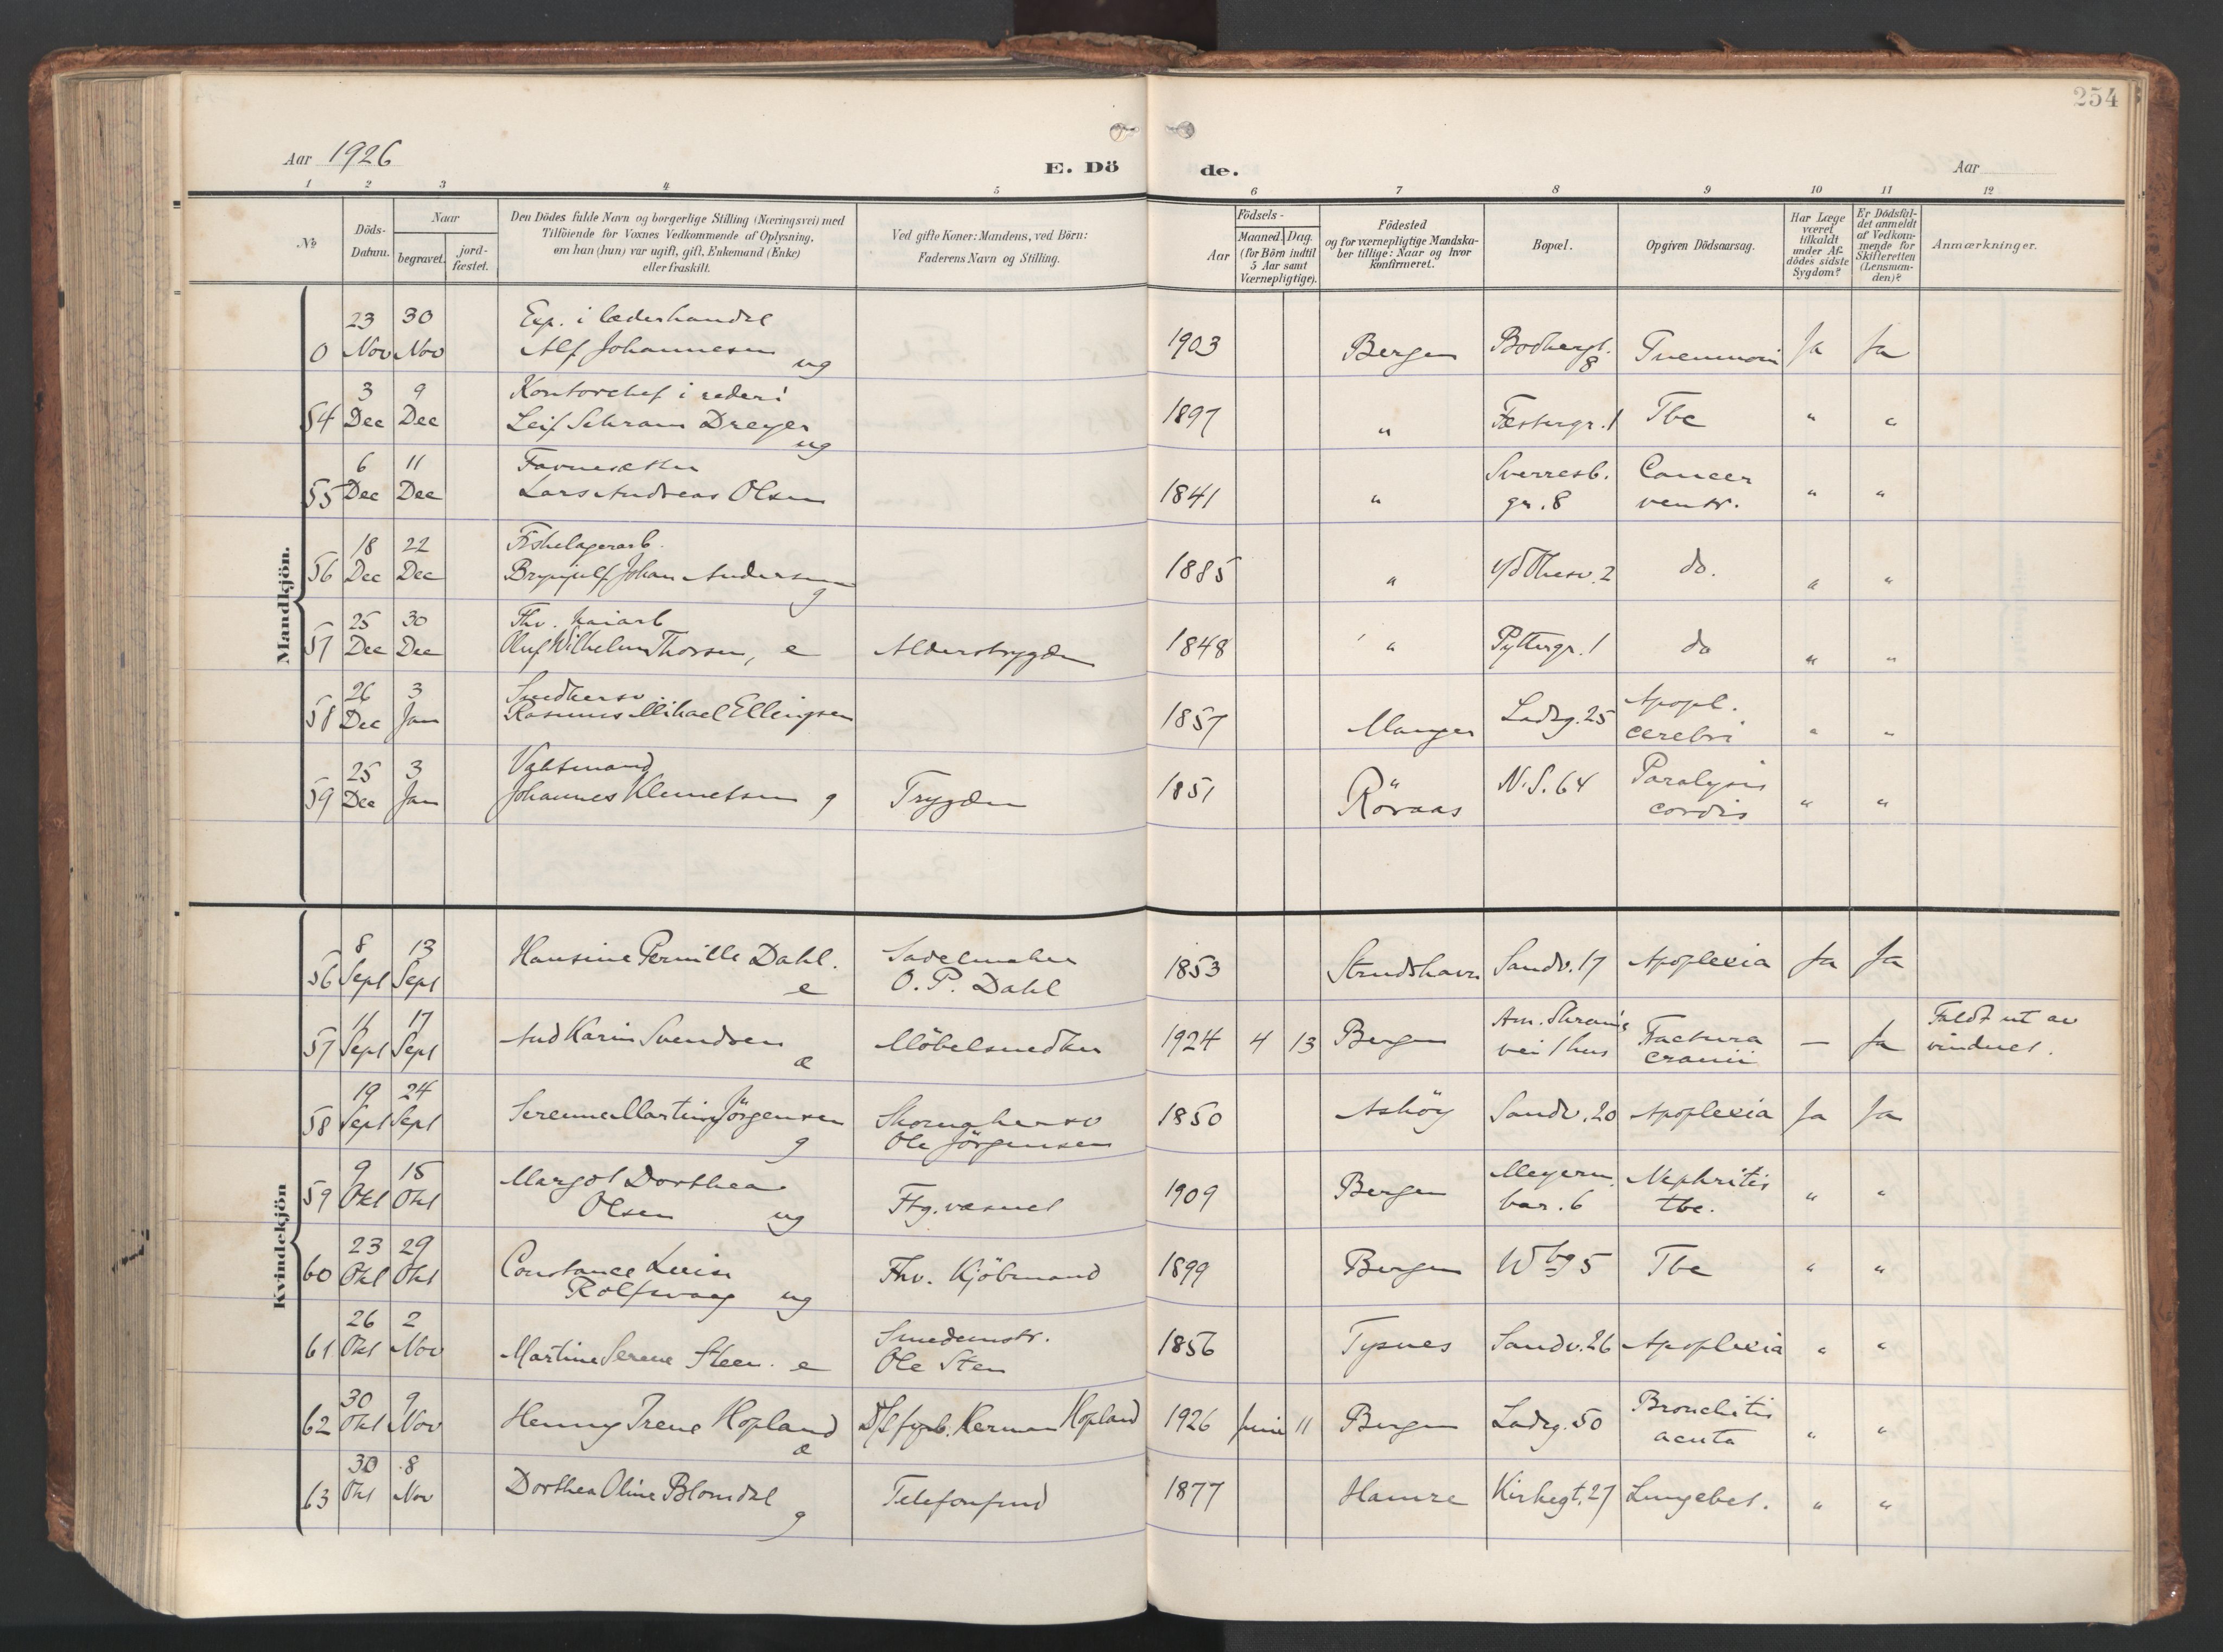 254
Aar 1926
E. Dö
de.
Aar
1 2 3 4 5 6 7 8 9 10 11 12
№
Döds-
Datum.
Naar
begravet.
jord-
fæstet.
Den Dödes fulde Navn og borgerlige Stilling (Næringsvei) med
Tilföiende for Voxnes Vedkommende af Oplysning,
om han (hun) var ugift, gift, Enkemand (Enke)
eller fraskilt.
Ved gifte Koner: Mandens, ved Börn:
Faderens Navn og Stilling.
Födsels-
Aar
Maaned. Dag.
(for Börn indtil
5 Aar samt
Værnepligtige).
Födested
og for værnepligtige Mandska-
ber tillige: Naar og hvor
Konfirmeret.
Bopæl.
Opgiven Dödsaarsag.
Har Læge
været
tilkaldt
under Af-
dödes sidste
Sygdom?
Er Dödsfal-
det anmeldt
af Vedkom-
mende for
Skifteretten
(Lensman-
den)?
Anmærkninger.
Mandkjön.
23 30 Exp. i læderhandel
0 Nov Nov Alf Johannesen ug 1903 Bergen 8 Ja Ja
3 9 Kontorchef i rederi
54 Dec Dec Leif Schram Dreyer ug 1897 " Festergr. 1 Tbc " "
6 11 Sverresb. Cancer
55 Dec Dec Lars Andreas Olsen 1841 " gr. 8 ventr. " "
18 22 Fiskelagerarb.
56 Dec Dec Brynjulf Johan Andersen g 1885 " 2 do. " "
25 30 Fhv. kaiarb
57 Dec Dec Oluf Wilhelm Thorsen, e Alderstrygden 1848 " Pyttergr. 1 do " "
26 3 Smedkersv Apopl.
58 Dec Jan Rasmus Mikael Ellingsen 1857 Manger Ladeg. 25 cerebri " "
25 3 Vaktmand " Paralysis
59 Dec Jan Johannes Klemetsen g Trygden 1851 Röraas N.S. 64 cordis " "
Kvindekjön
8 13 Hansine Pernille Dahl. Sadelmaker
56 Sept Sept e O. P. Dahl 1853 Strudshavn Sandv. 17 Apoplexia Ja Ja
11 17 Faldt ut av
57 Sept Sept Aud Karin Svendsen æ Möbelsnedker 1924 4 13 Bergen vei 1 hus Fractura cranii — Ja vinduet.
19 24 Serenne Martine Jörgensen Skomakersv
58 Sept Sept g Ole Jörgensen 1850 Asköy Sandv. 20 Apoplexia Ja Ja
9 15 Margot Dorthea Meyerm. Nephritis
59 Okt Okt Olsen ug Ftg. væsnet 1909 Bergen bar. 6 tbc. " "
23 29 Constance Luise
60 Okt Okt Rolfsvaag ug Fhv. Kjöbmand 1899 Bergen Wbg 5 Tbc " "
26 2 Smedemstr.
61 Okt Nov Martine Serene Steen. e Ole Sten 1856 Tysnes Sandv. 26 Apoplexia " "
30 9 Bronchitis
62 Okt Nov Henny Irene Hopland æ D/S fyrb. Herman Hopland 1926 Juni 11 Bergen Ladeg. 50 acuta " "
30 8
63 Okt Nov Dorthea Oline Blomdal g Telefonfmd 1877 Hamre Kirkegt. 27 Lungebet. " "